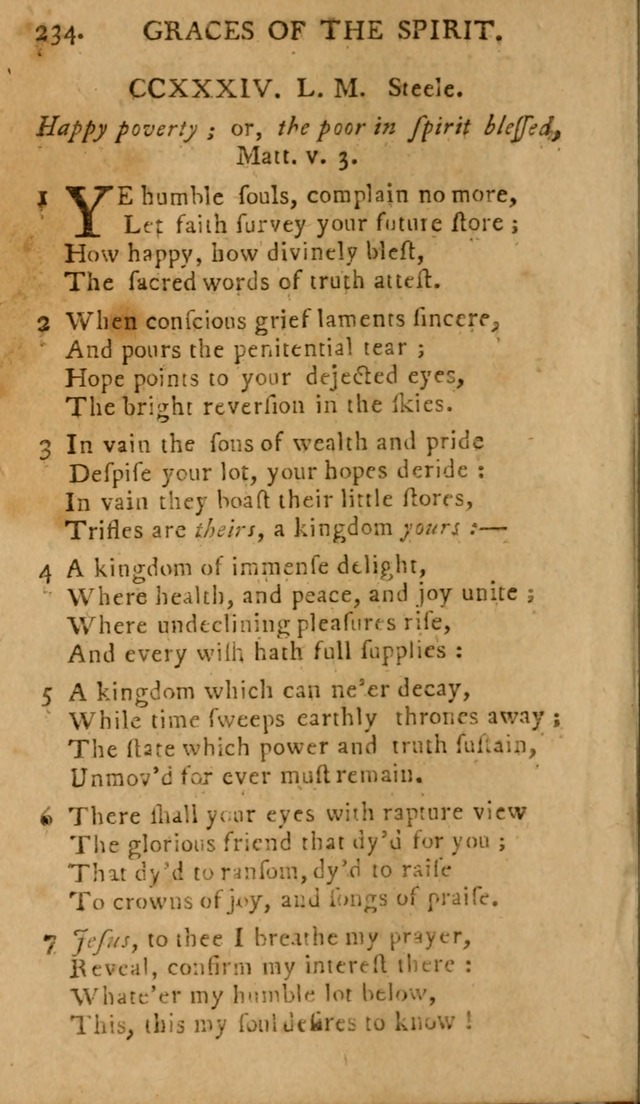 234. GRACES OF THE SPIRIT.
CCXXXIV. L. M. Steele.
Happy poverty ; or, the poor in ſpirit bleſſed,
Matt. v. 3.
1 YE humble ſouls, complain no more,
Let faith ſurvey your future ſtore ;
How happy, how divinely bleſt,
The ſacred words of truth atteſt.
2 When conſcious grief laments ſincere,
And pours the penitential tear ;
Hope points to your dejected eyes,
The bright reverſion in the ſkies.
3 In vain the ſons of wealth and pride
Deſpiſe your lot, your hopes deride :
In vain they boaſt their little ſtores,
Trifles are theirs, a kingdom yours :—
4 A kingdom of immenſe delight,
Where health, and peace, and joy unite ;
Where undeclining pleaſures riſe,
And every wiſh hath full ſupplies :
5 A kingdom which can ne'er decay,
While time ſweeps earthly thrones away ;
The ſtate which power and truth ſuſtain,
Unmov'd for ever muſt remain.
6 There ſhall your eyes with rapture view
The glorious friend that dy'd for you ;
That dy'd to ranſom, dy'd to raiſe
To crowns of joy, and ſongs of praiſe.
7 Jeſus, to thee I breathe my prayer,
Reveal, confirm my intereſt there :
Whate'er my humble lot below,
This, this my ſoul deſires to know !